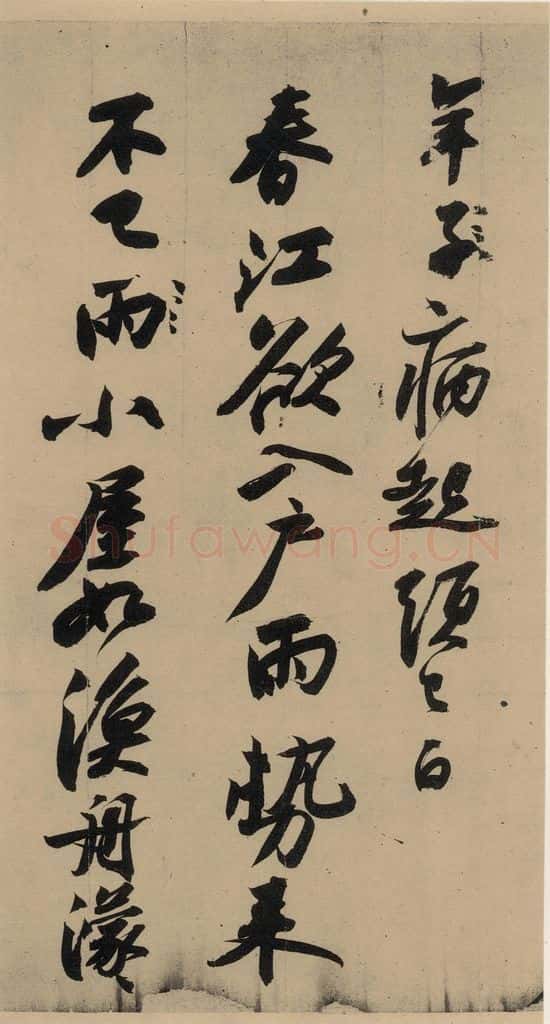 年子病起須已白
春江欲入戶雨勢来
不已雨小屋如漁舟濛々
Shufawang.CN